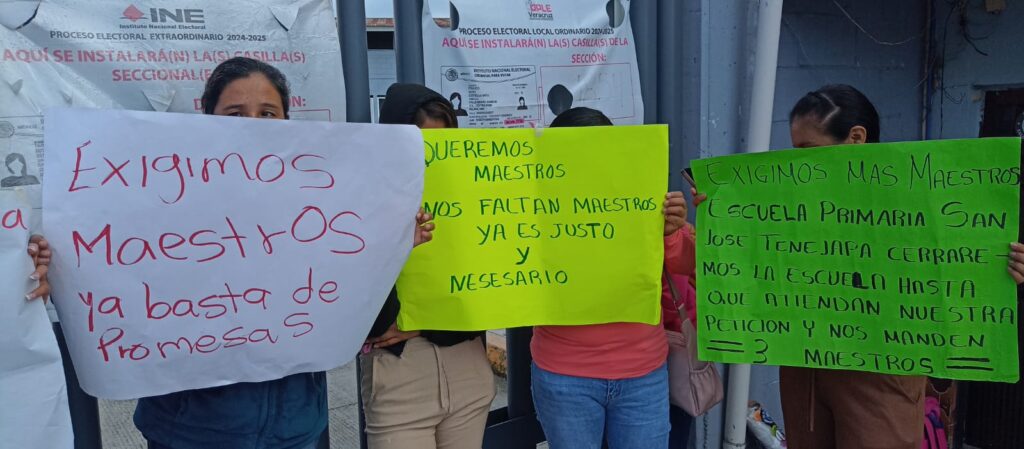 INE
Instituto Nacional Electoral
PROCESO ELECTORAL EXTRAORDINARIO 2024-2025
AQUÍ SE INSTALARÁ(N) LA(S) CASILLA(S)
SECCIONAL(ES)
OPLE
Veracruz
PROCESO ELECTORAL LOCAL ORDINARIO 2024-2025
AQUÍ SE INSTALARÁ(N) LA(S) CASILLA(S) DE LA
SECCIÓN:
a
Exigimos
Maestros
ya basta de
Promesas
QUEREMOS
MAESTROS
NOS FALTAN MAESTROS
YA ES JUSTO
Y
NESESARIO
EXIGIMOS MAS MAESTROS
ESCUELA PRIMARIA SAN
JOSE TENEJAPA CERRARE-
MOS LA ESCUELA HASTA
QUE ATIENDAN NUESTRA
PETICION Y NOS MANDEN
= 3 MAESTROS =